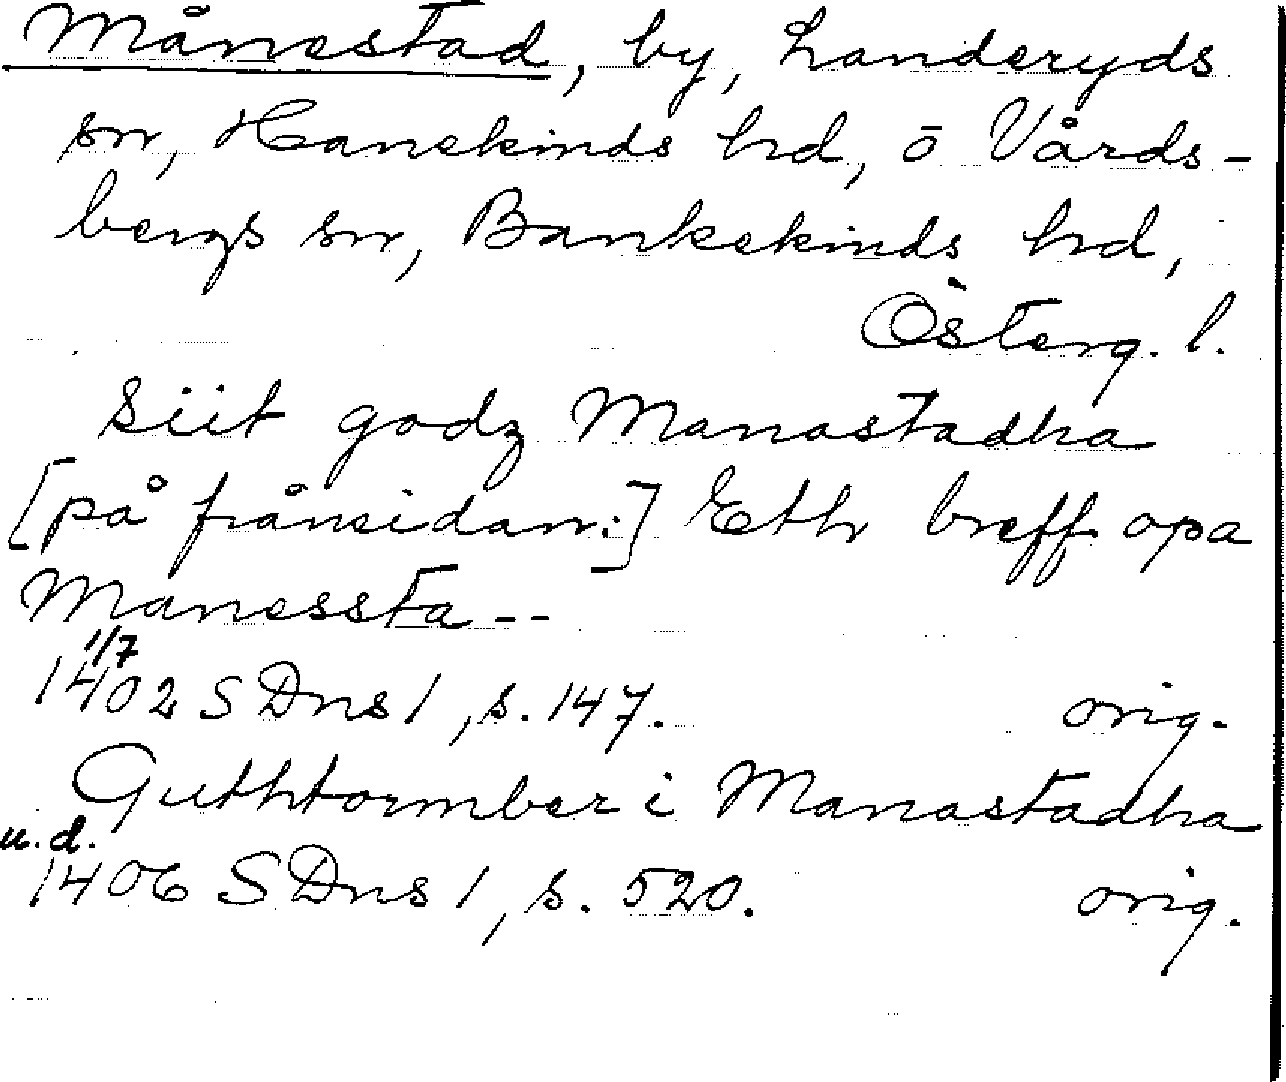 Månestad, by, Landeryds
sn, Hanekinds hd, o Vårds-
bergs sn, Bankekinds hd,
Österg. l.
Siit godz Manastadha
[på frånsidan:] Eth breff opa
Manessta --
1/7
1402 SDns 1, s. 147. orig.
Guthtormber i Manastadha
u. d.
1406 SDns 1, s. 520. orig.